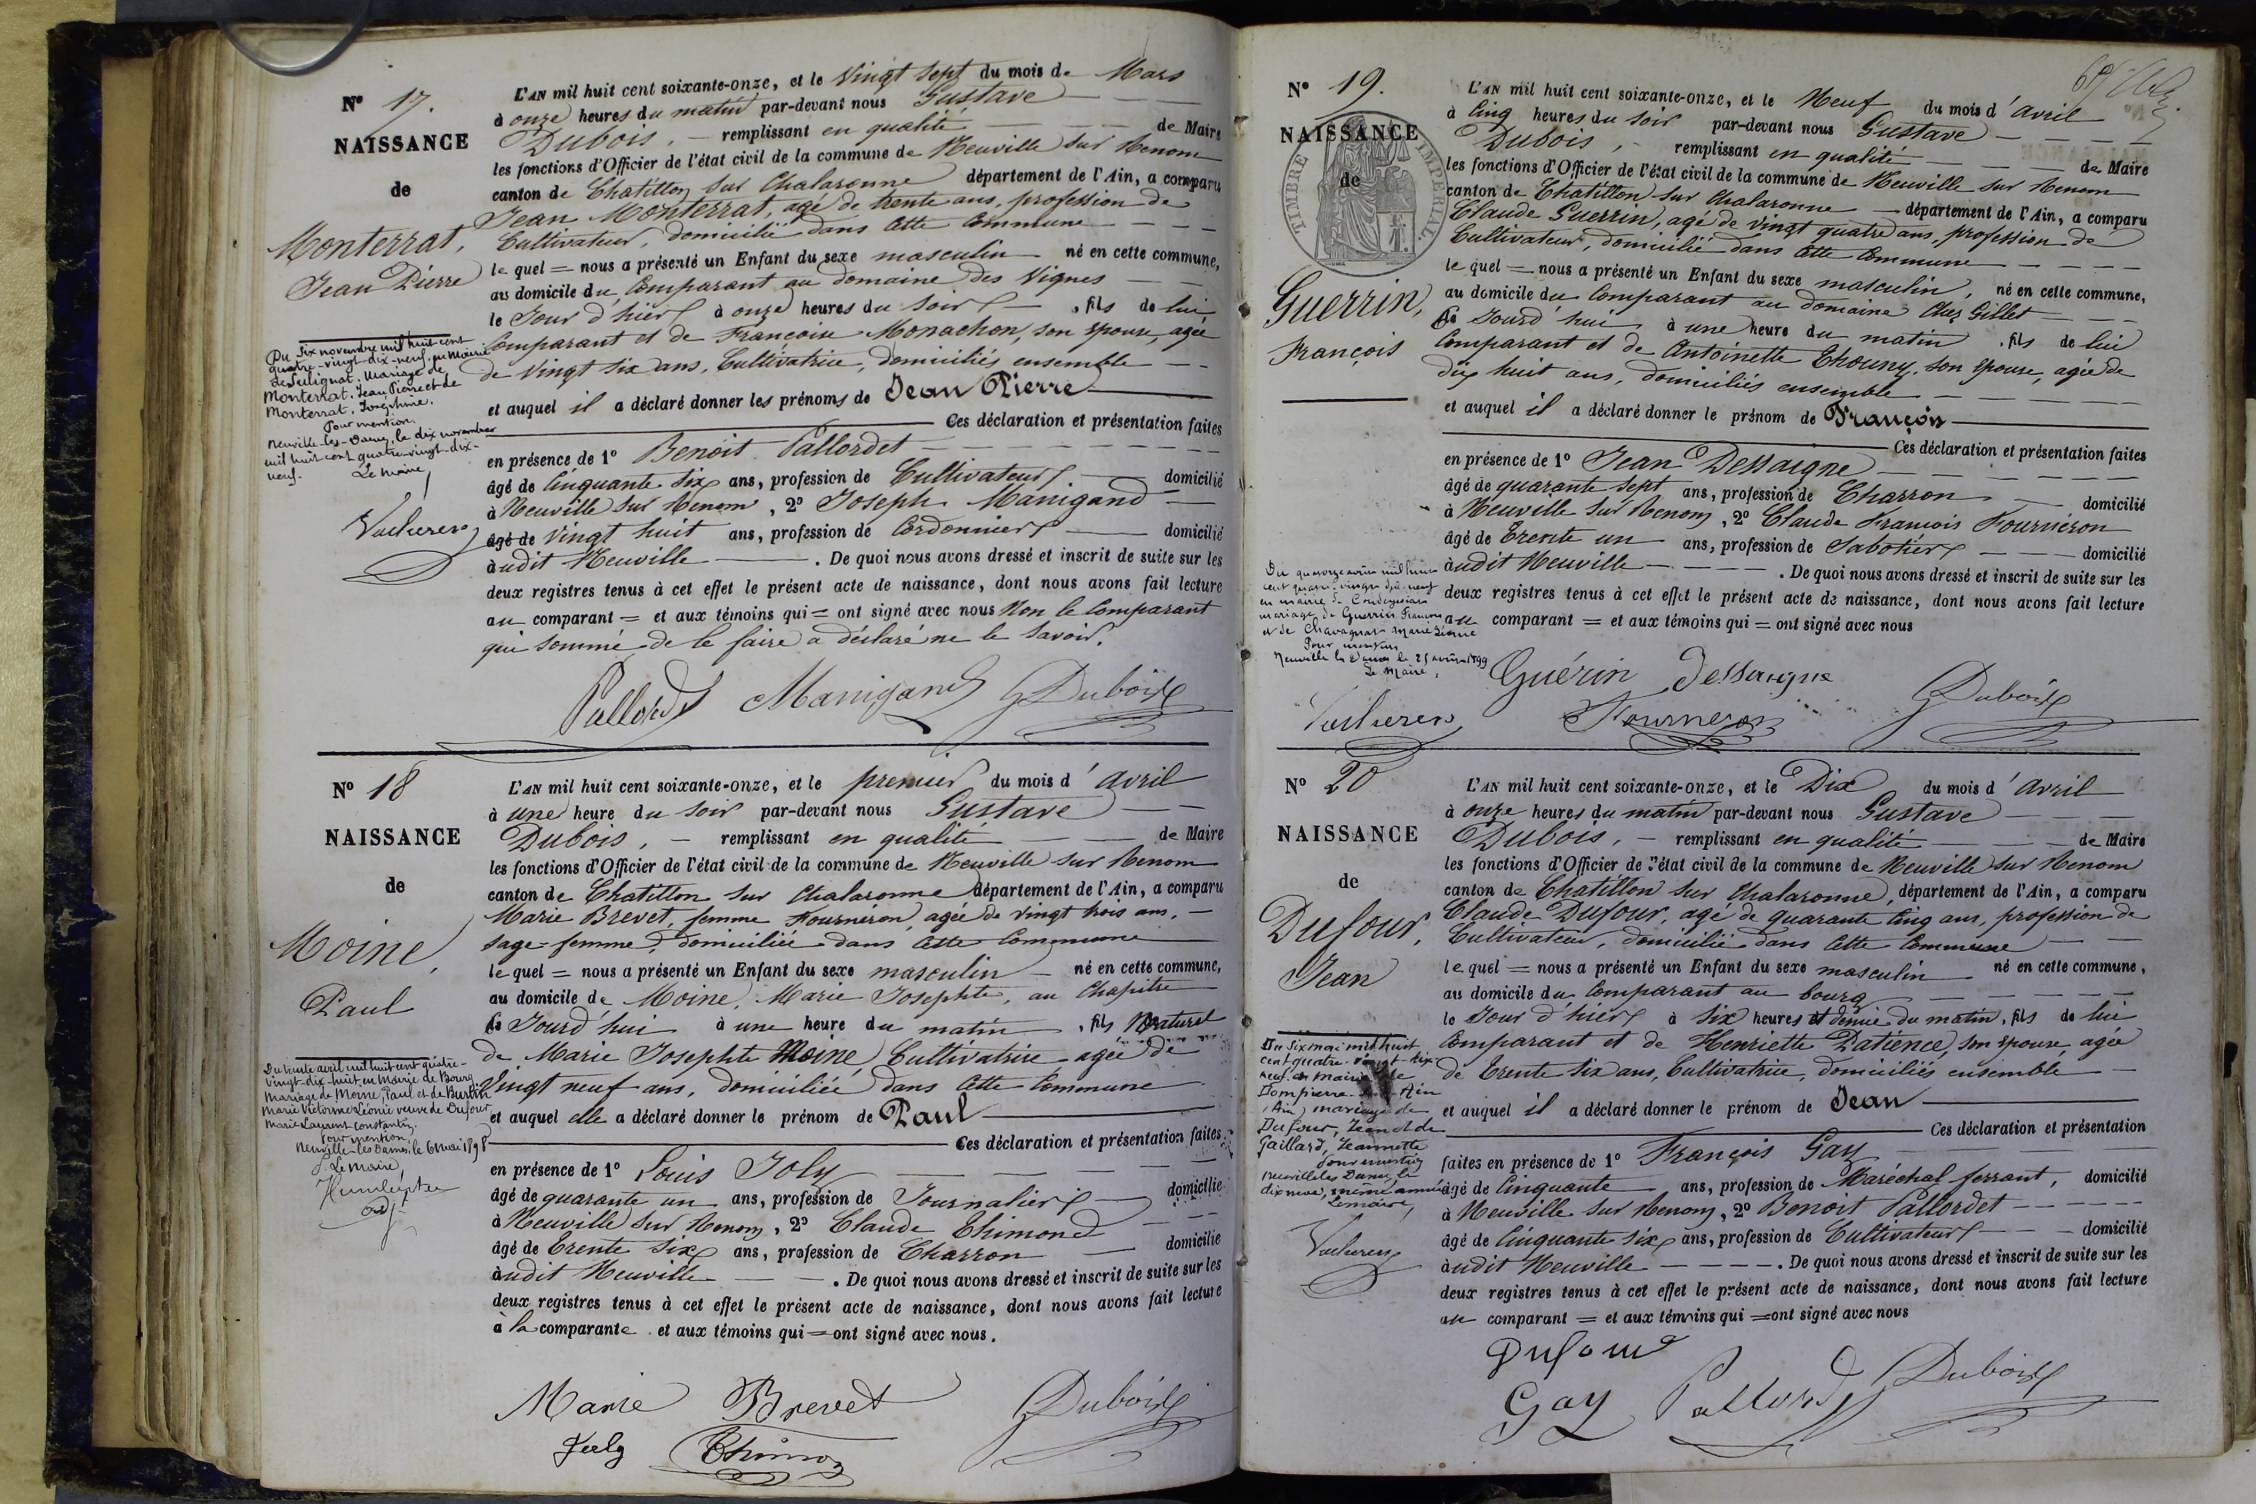 Nº 17.
NAISSANCE
de
Monterrat,
Jean Pierre
L'AN mil huit cent soixante-onze, et le Vingt Sept du mois de Mars
à onze heures du matin par-devant nous Gustave
Dubois, remplissant en qualité de Maire
les fonctions d'Officier de l'état civil de la commune de Neuville sur Renom
canton de Chatillon sur Chalaronne département de l'Ain, a comparu
Jean Monterrat, agé de trente ans, profession de
Cultivateur, domicilié dans Cette Commune
le quel = nous a présenté un Enfant du sexe masculin né en cette commune,
au domicile du Comparant au domaine des Vignes
le Jour d'hier à onze heures du Soir, fils de lui
Comparant et de Françoise Monachon, son épouse, agée
de Vingt six ans, Cultivatrice, domiciliés ensemble
et auquel il a déclaré donner les prénoms de Jean Pierre
Ces déclaration et présentation faites
en présence de 1º Benoit Pallordet
âgé de Cinquante six ans, profession de Cultivateur domicilié
à Neuville sur Renom, 2º Joseph Manigand
âgé de vingt huit ans, profession de Cordonnier domicilié
audit Neuville. De quoi nous avons dressé et inscrit de suite sur les
deux registres tenus à cet effet le présent acte de naissance, dont nous avons fait lecture
au comparant = et aux témoins qui = ont signé avec nous Non le Comparant
qui sommé de le faire a déclaré ne le Savoir.
Pallordet Manigand GDubois
Du Six novembre mil huit cent
quatre-vingt-dix-neuf, en Mairie
de Sulignat, Mariage de
Monterrat, Jean Pierre et de
Monterrat, Joséphine.
Pour mention.
Neuville-les-Dames, le dix novembre
mil huit cent quatre-vingt-dix-
neuf.
Le maire,
Nº 18
NAISSANCE
de
Moine,
Paul
L'AN mil huit cent soixante-onze, et le premier du mois d'avril
à une heure du Soir par-devant nous Gustave
Dubois, remplissant en qualité de Maire
les fonctions d'Officier de l'état civil de la commune de Neuville sur Renom
canton de Chatillon sur Chalaronne département de l'Ain, a comparu
Marie Brevet, femme Fournéron, agée de vingt trois ans,
sage-femme, domiciliée dans Cette Commune
le quel = nous a présenté un Enfant du sexe masculin né en cette commune,
au domicile de Moine, Marie Josephte, au Chapitre
Ce Jourd'hui à une heure du matin, fils Naturel
de Marie Josephte Moine, Cultivatrice agée de
Vingt neuf ans, domiciliée dans Cette Commune
et auquel elle a déclaré donner le prénom de Paul
Ces déclaration et présentation faites
en présence de 1º Louis Joly
âgé de quarante un ans, profession de Journalier domicilié
à Neuville sur Renom, 2º Claude Thimond
âgé de Trente Six ans, profession de Charron domicilié
audit Neuville. De quoi nous avons dressé et inscrit de suite sur les
deux registres tenus à cet effet le présent acte de naissance, dont nous avons fait lecture
à la comparante et aux témoins qui = ont signé avec nous.
Marie Brevet GDubois
Joly Thimon
Du trente avril mil huit cent quatre-
vingt-dix-huit, en Mairie de Bourg
Mariage de Moine, Paul et de Burtin
Marie Victorine Léonie veuve de Dufour
Marie Laurent Constantin.
Pour mention,
Neuville-les-Dames, le 6 mai 1898
Le Maire,
Nº 19.
NAISSANCE
de
TIMBRE IMPERIAL.
Guerrin,
François
L'AN mil huit cent soixante-onze, et le Neuf du mois d'avril
à Cinq heures du Soir par-devant nous Gustave
Dubois, remplissant en qualité de Maire
les fonctions d'Officier de l'état civil de la commune de Neuville sur Renom
canton de Chatillon sur Chalaronne département de l'Ain, a comparu
Claude Guerrin, agé de vingt quatre ans, profession de
Cultivateur, domicilié dans Cette Commune
le quel = nous a présenté un Enfant du sexe masculin, né en cette commune,
au domicile du Comparant au domaine Chez Gillet
Ce Jourd'hui à une heure du matin, fils de lui
Comparant et de Antoinette Chouny, son épouse, agée de
dix huit ans, domiciliés ensemble
et auquel il a déclaré donner le prénom de François
Ces déclaration et présentation faites
en présence de 1º Jean Dessaigne
âgé de quarante sept ans, profession de Charron domicilié
à Neuville sur Renom, 2º Claude François Fournéron
âgé de Trente un ans, profession de Sabotier domicilié
audit Neuville. De quoi nous avons dressé et inscrit de suite sur les
deux registres tenus à cet effet le présent acte de naissance, dont nous avons fait lecture
au comparant = et aux témoins qui = ont signé avec nous
Guérin Dessaigne
Fourneron GDubois
mariage de Guerrin François
Pour mention
Neuville les Dames le 25 avril 1899
Le Maire,
Nº 20
NAISSANCE
de
Dufour,
Jean
L'AN mil huit cent soixante-onze, et le Dix du mois d'avril
à onze heures du matin par-devant nous Gustave
Dubois, remplissant en qualité de Maire
les fonctions d'Officier de l'état civil de la commune de Neuville sur Renom
canton de Chatillon sur Chalaronne, département de l'Ain, a comparu
Claude Dufour, agé de quarante Cinq ans, profession de
Cultivateur, domicilié dans Cette Commune
le quel = nous a présenté un Enfant du sexe masculin né en cette commune,
au domicile du Comparant au bourg
le Jour d'hier à Six heures et demie du matin, fils de lui
Comparant et de Henriette Patience, son épouse, agée
de Trente Six ans, Cultivatrice, domiciliés ensemble
et auquel il a déclaré donner le prénom de Jean
Ces déclaration et présentation
faites en présence de 1º François Gay
âgé de Cinquante ans, profession de Maréchal ferrant, domicilié
à Neuville sur Renom, 2º Benoit Pallordet
âgé de Cinquante six ans, profession de Cultivateur domicilié
audit Neuville. De quoi nous avons dressé et inscrit de suite sur les
deux registres tenus à cet effet le présent acte de naissance, dont nous avons fait lecture
au comparant = et aux témoins qui = ont signé avec nous
Dufour
Gay Pallordet GDubois
Du Six mai mil huit
cent quatre-vingt-dix
neuf, en mairie de
Dompierre Ain
(Ain) mariage de
Dufour, Jean et de
Gaillard, Jeannette
Pour mention
Neuville les Dames, le
dix mai, même année
Le maire,